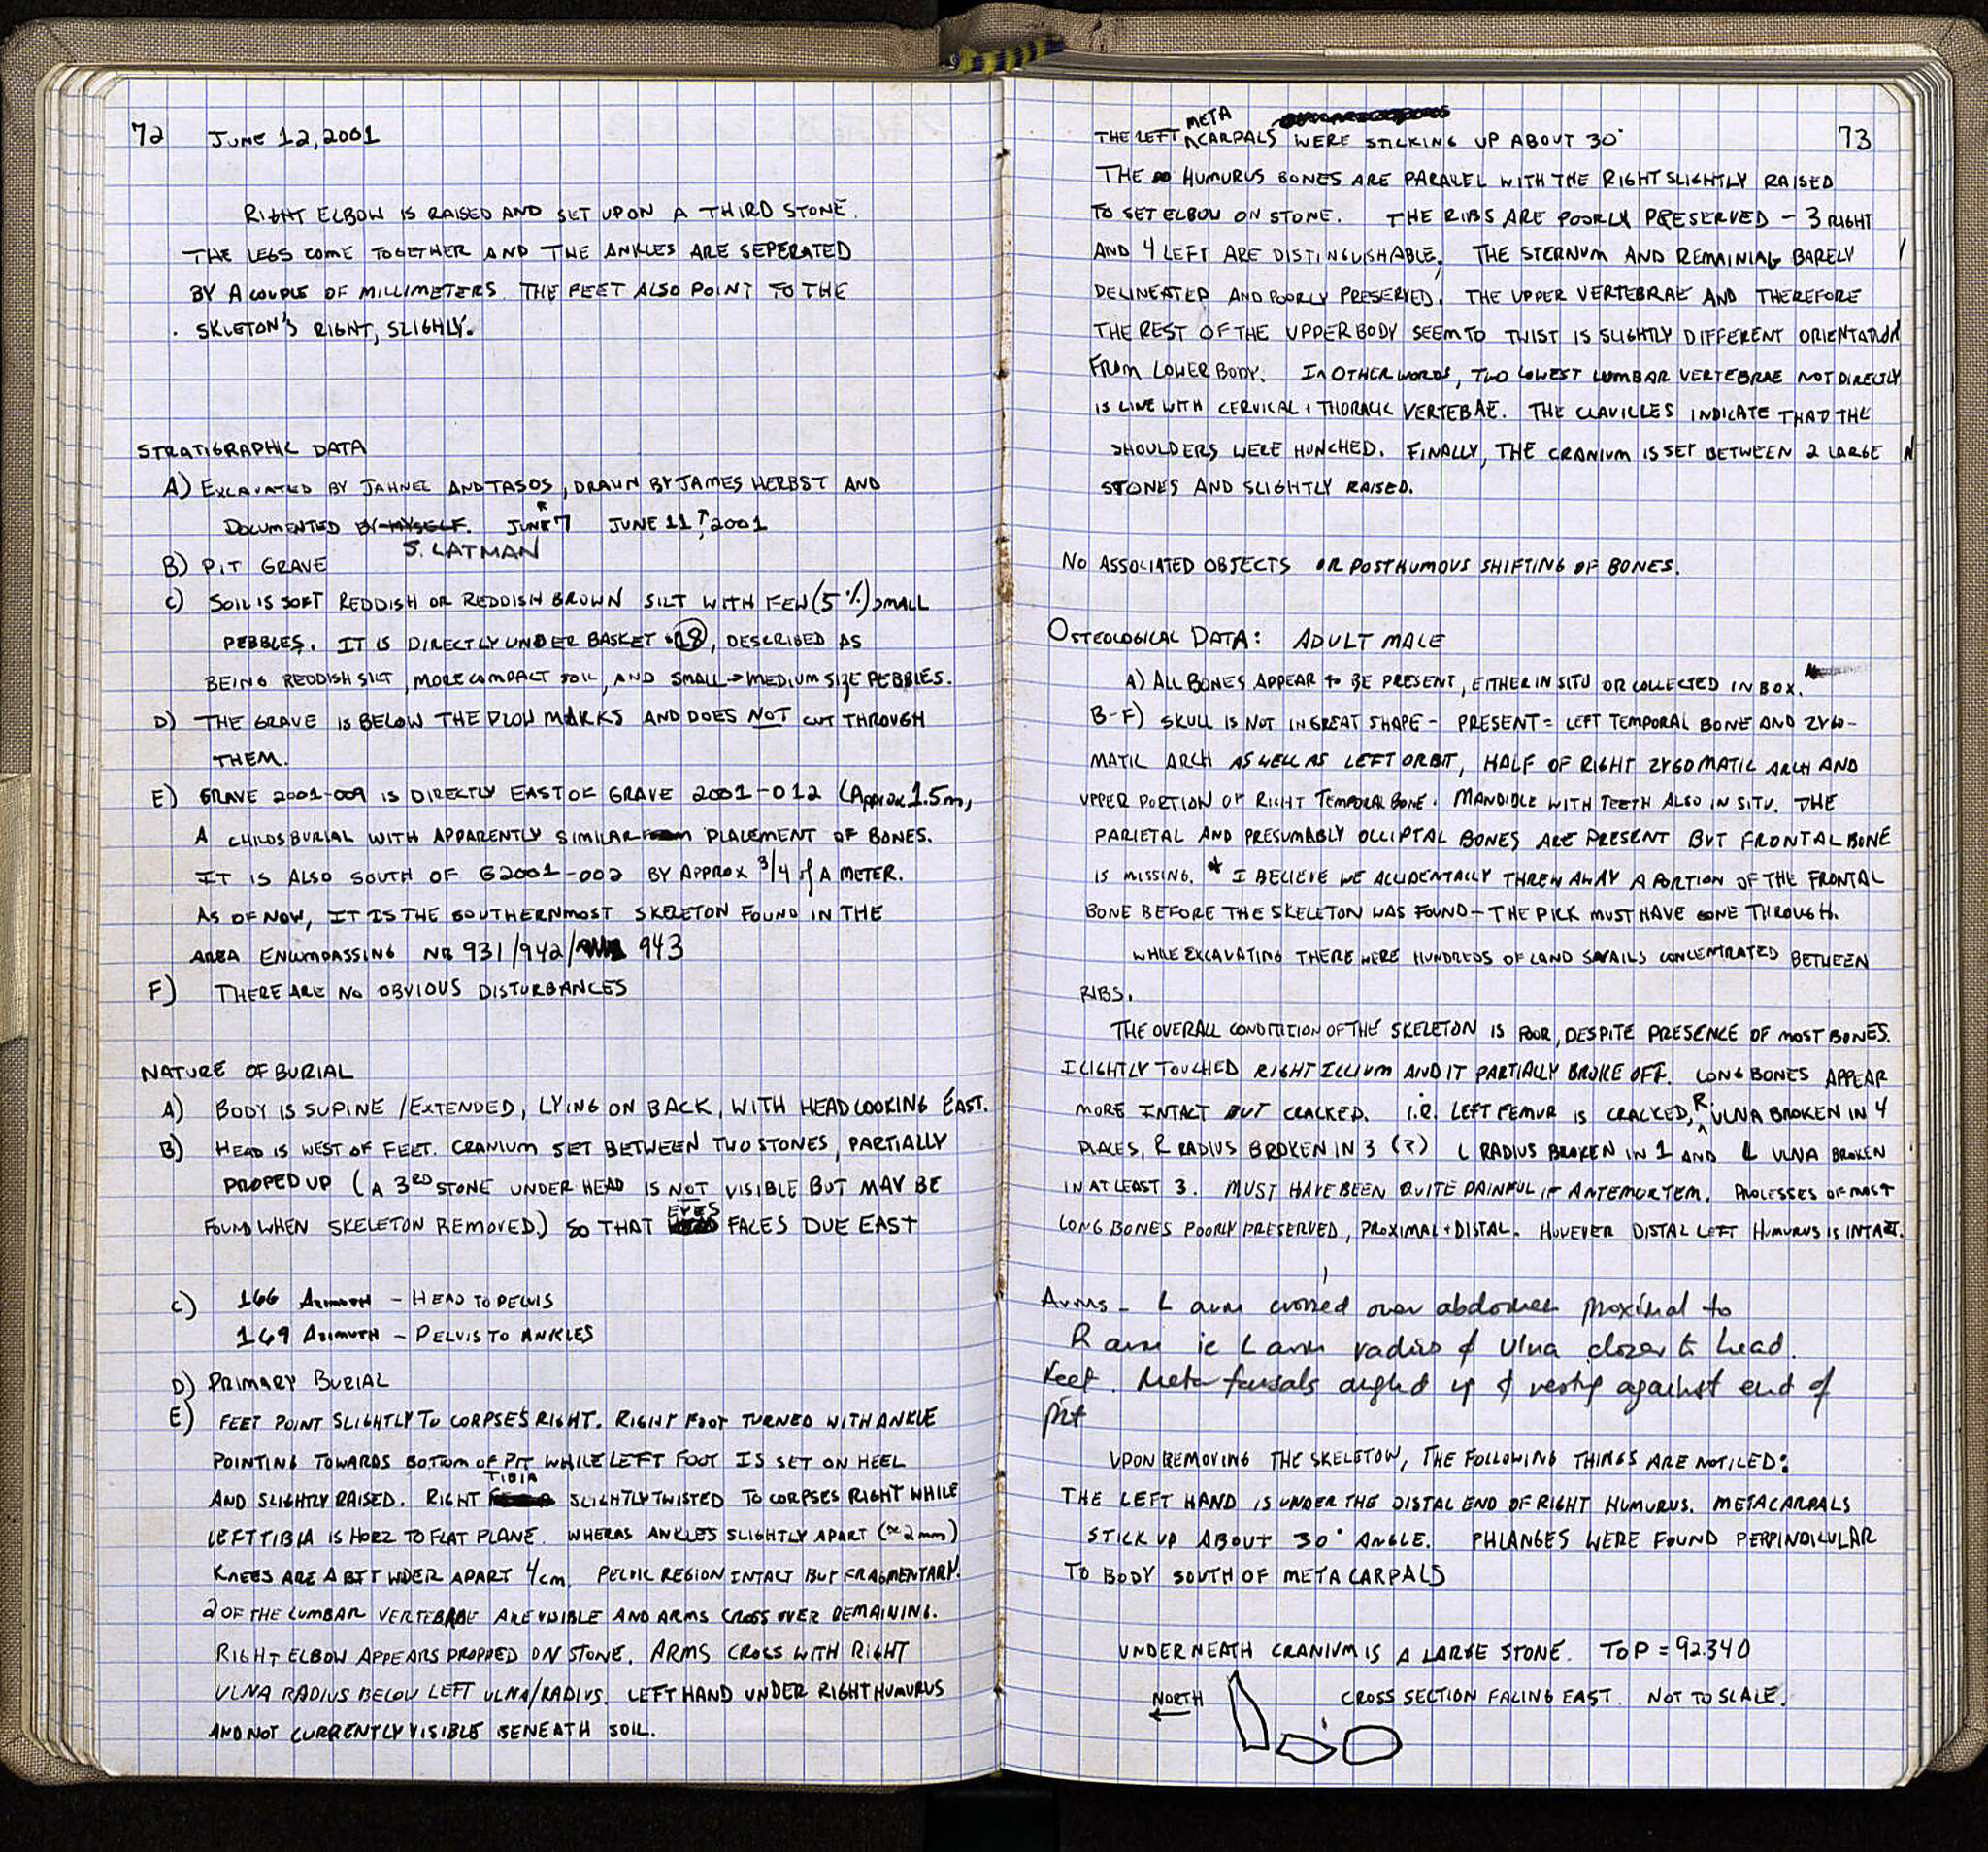 72 JUNE 12, 2001
RIGHT ELBOW IS RAISED AND SET UPON A THIRD STONE.
THE LEGS COME TOGETHER AND THE ANKLES ARE SEPERATED
BY A COUPLE OF MILLIMETERS. THE FEET ALSO POINT TO THE
SKLETON'S RIGHT, SLIGHLY.
STRATIGRAPHIC DATA
A) EXCAVATED BY JAHNEL AND TASOS, DRAWN BY JAMES HERBST AND
DOCUMENTED BY MYSELF. JUNE 7 JUNE 11, 2001
S. LATMAN
B) PIT GRAVE
C) SOIL IS SOFT REDDISH OR REDDISH BROWN SILT WITH FEW (5%) SMALL
PEBBLES. IT IS DIRECTLY UNDER BASKET 28, DESCRIBED AS
BEING REDDISH SILT, MORE COMPACT SOIL, AND SMALL → MEDIUM SIZE PEBBLES.
D) THE GRAVE IS BELOW THE PLOW MARKS AND DOES NOT CUT THROUGH
THEM.
E) GRAVE 2001-009 IS DIRECTLY EAST OF GRAVE 2001-012 (APPROX 1.5m,
A CHILDS BURIAL WITH APPARENTLY SIMILAR PLACEMENT OF BONES.
IT IS ALSO SOUTH OF G2001-002 BY APPROX 3/4 of A METER.
AS OF NOW, IT IS THE SOUTHERNMOST SKELETON FOUND IN THE
AREA ENCOMPASSING NB 931/942/ 943
F) THERE ARE NO OBVIOUS DISTURBANCES
NATURE OF BURIAL
A) BODY IS SUPINE/EXTENDED, LYING ON BACK, WITH HEAD LOOKING EAST.
B) HEAD IS WEST OF FEET. CRANIUM SET BETWEEN TWO STONES, PARTIALLY
PROPED UP (A 3RD STONE UNDER HEAD IS NOT VISIBLE BUT MAY BE
FOUND WHEN SKELETON REMOVED.) SO THAT EYES FACES DUE EAST
C) 166 AZIMUTH - HEAD TO PELVIS
169 AZIMUTH - PELVIS TO ANKLES
D) PRIMARY BURIAL
E) FEET POINT SLIGHTLY TO CORPSES RIGHT. RIGHT FOOT TURNED WITH ANKLE
POINTING TOWARDS BOTTOM OF PIT WHILE LEFT FOOT IS SET ON HEEL
AND SLIGHTLY RAISED. RIGHT TIBIA SLIGHTLY TWISTED TO CORPSES RIGHT WHILE
LEFT TIBIA IS HORZ TO FLAT PLANE. WHERAS ANKLES SLIGHTLY APART (≈2mm)
KNEES ARE A BIT WIDER APART 4cm. PELVIC REGION INTACT BUT FRAGMENTARY.
2 OF THE LUMBAR VERTEBRAE ARE VISIBLE AND ARMS CROSS OVER REMAINING.
RIGHT ELBOW APPEARS PROPPED ON STONE. ARMS CROSS WITH RIGHT
ULNA RADIUS BELOW LEFT ULNA/RADIUS. LEFT HAND UNDER RIGHT HUMURUS
AND NOT CURRENTLY VISIBLE BENEATH SOIL.
73
THE LEFT METACARPALS WERE STICKING UP ABOUT 30°
THE HUMURUS BONES ARE PARALEL WITH THE RIGHT SLIGHTLY RAISED
TO SET ELBOW ON STONE. THE RIBS ARE POORLY PRESERVED - 3 RIGHT
AND 4 LEFT ARE DISTINGUISHABLE. THE STERNUM AND REMAINING BARELY
DELINEATED AND POORLY PRESERVED. THE UPPER VERTEBRAE AND THEREFORE
THE REST OF THE UPPER BODY SEEM TO TWIST IS SLIGHTLY DIFFERENT ORIENTATION
FROM LOWER BODY. IN OTHER WORDS, TWO LOWEST LUMBAR VERTEBRAE NOT DIRECTLY
IS LINE WITH CERVICAL + THORACIC VERTEBAE. THE CLAVICLES INDICATE THAT THE
SHOULDERS WERE HUNCHED. FINALLY, THE CRANIUM IS SET BETWEEN 2 LARGE
STONES AND SLIGHTLY RAISED.
NO ASSOCIATED OBJECTS OR POSTHUMOUS SHIFTING OF BONES.
OSTEOLOGICAL DATA: ADULT MALE
A) ALL BONES APPEAR TO BE PRESENT, EITHER IN SITU OR COLLECTED IN BOX.
B-F) SKULL IS NOT IN GREAT SHAPE - PRESENT = LEFT TEMPORAL BONE AND ZYGO-
MATIC ARCH AS WELL AS LEFT ORBIT, HALF OF RIGHT ZYGOMATIC ARCH AND
UPPER PORTION OF RIGHT TEMPORAL BONE. MANDIBLE WITH TEETH ALSO IN SITU. THE
PARIETAL AND PRESUMABLY OCCIPTAL BONES ARE PRESENT BUT FRONTAL BONE
IS MISSING. * I BELIEVE WE ACCIDENTALLY THREW AWAY A PORTION OF THE FRONTAL
BONE BEFORE THE SKELETON WAS FOUND - THE PICK MUST HAVE GONE THROUGH.
WHILE EXCAVATING THERE WERE HUNDREDS OF LAND SNAILS CONCENTRATED BETWEEN
RIBS.
THE OVERALL CONDITION OF THE SKELETON IS POOR, DESPITE PRESENCE OF MOST BONES.
I LIGHTLY TOUCHED RIGHT ILLIUM AND IT PARTIALLY BROKE OFF. LONG BONES APPEAR
MORE INTACT BUT CRACKED. i.e. LEFT FEMUR IS CRACKED, R. ULNA BROKEN IN 4
PLACES, R RADIUS BROKEN IN 3 (?) L RADIUS BROKEN IN 1 AND L ULNA BROKEN
IN AT LEAST 3. MUST HAVE BEEN QUITE PAINFUL IF ANTEMORTEM. PROCESSES OF MOST
LONG BONES POORLY PRESERVED, PROXIMAL + DISTAL. HOWEVER DISTAL LEFT HUMURUS IS INTACT.
Arms - L arm crossed over abdomen proximal to
R arm ie L arm radius & ulna closer to head.
Feet. Meta tarsals angled up & resting against end of
pit
UPON REMOVING THE SKELETON, THE FOLLOWING THINGS ARE NOTICED:
THE LEFT HAND IS UNDER THE DISTAL END OF RIGHT HUMURUS. METACARPALS
STICK UP ABOUT 30° ANGLE. PHLANGES WERE FOUND PERPINDICULAR
TO BODY SOUTH OF METACARPALS
UNDERNEATH CRANIUM IS A LARGE STONE. TOP = 92.340
NORTH CROSS SECTION FACING EAST. NOT TO SCALE.